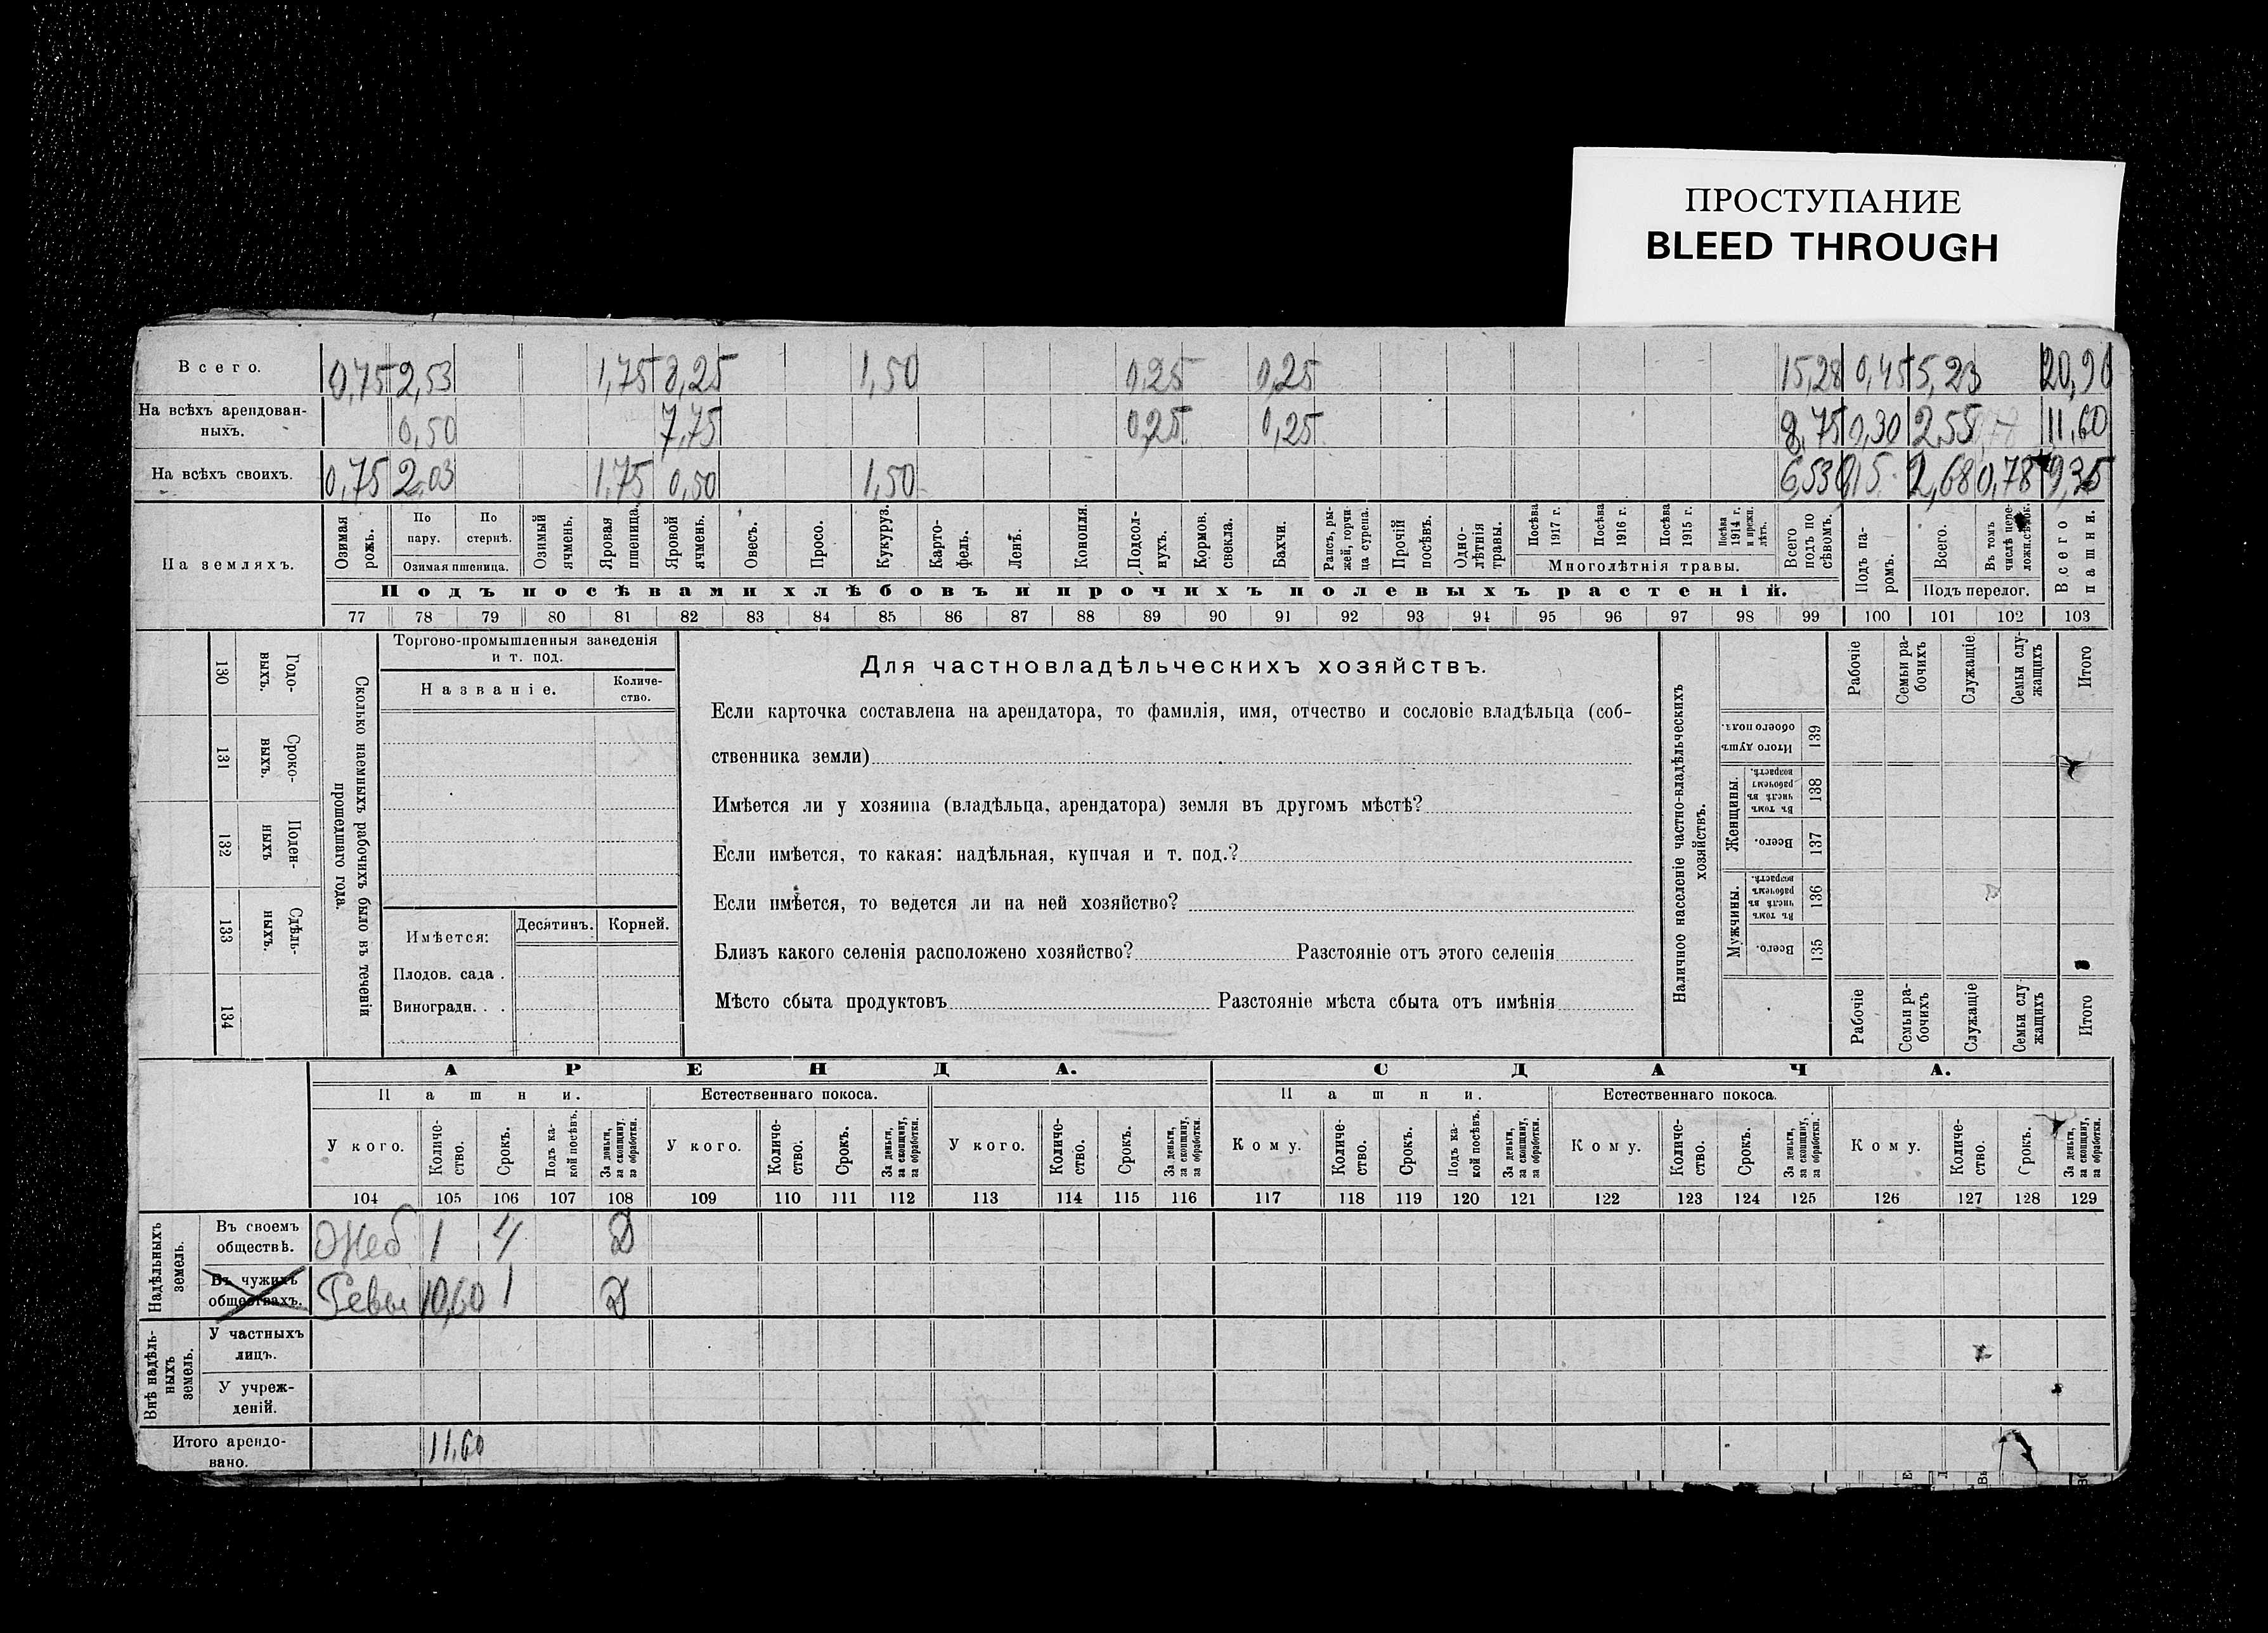 ПРОСТУПАНИЕ
BLEED THROUGH
Всего. 0,75 2,53 1,75 8,25 1,50 0,25 0,25 15,28 0,45 5,23 20,90
На всѣхъ арендован-
ныхъ. 0,50 7,75 0,25 0,25 8,75 0,30 2,55 11,60
На всѣхъ своихъ. 0,75 2,03 1,75 0,50 1,50 6,53 015 2,68 0,78 9,35
На земляхъ.
Озимая рожь.
По пару.
По стернѣ.
Озимая пшеница.
Озимый ячмень.
Яровая пшеница.
Яровой ячмень.
Овесъ.
Просо.
Кукуруз.
Карто-
фель.
Ленъ.
Конопля.
Подсол-
нухъ.
Кормов. свекла.
Бахчи.
Рапсъ, ры-
жей, горчи-
ца сурепа.
Прочій посѣвъ.
Одно-
лѣтнія травы.
Посѣва 1917 г.
Посѣва 1916 г.
Посѣва 1915 г.
Посѣва 1914 г. и прежн. лѣтъ.
Многолѣтнія травы.
Всего подъ по
сѣвомъ.
Подъ па-
ромъ.
Всего.
Въ томъ числѣ пере-
ложн.сѣнок.
Подъ перелог.
Всего пашни.
Подъ посѣвами хлѣбовъ и прочихъ полевыхъ растеній.
77 78 79 80 81 82 83 84 85 86 87 88 89 90 91 92 93 94 95 96 97 98 99 100 101 102 103
130 Годо-
выхъ.
131 Сроко-
выхъ.
132 Поден-
ныхъ
133 Сдѣль-
ныхъ.
134
Сколько наемныхъ рабочихъ было въ теченіи
прошедшаго года.
Торгово-промышленныя заведенія
и т. под.
Названіе.
Количе-
ство.
Имѣется:
Десятинъ. Корней.
Плодов. сада .
Виноградн. . .
Для частновладѣльческихъ хозяйствъ.
Если карточка составлена на арендатора, то фамилія, имя, отчество и сословіе владѣльца (соб-
ственника земли)
Имѣется ли у хозяина (владѣльца, арендатора) земля въ другомъ мѣстѣ?
Если имѣется, то какая: надѣльная, купчая и т. под.?
Если имѣется, то ведется ли на ней хозяйство?
Близъ какого селенія расположено хозяйство? Разстояніе отъ этого селенія
Мѣсто сбыта продуктовъ Разстояніе мѣста сбыта отъ имѣнія
Наличное населеніе частно-владѣльческихъ
хозяйствъ.
Рабочіе
Семьи ра-
бочихъ
Служащіе
Семьи слу-
жащихъ
Итого
Итого душъ
обоего пола.
139
Женщины.
Въ томъ числѣ въ рабочемъ возрастѣ.
138
Всего.
137
Мужчины.
Въ томъ числѣ въ рабочемъ возрастѣ.
136
Всего.
135
Рабочіе
Семьи ра-
бочихъ
Служащіе
Семьи слу
жащихъ
Итого
АРЕНДА. СДАЧА.
Пашни. Естественнаго покоса. Пашни. Естественнаго покоса.
У кого.
Количе-
ство.
Срокъ.
Подъ ка-
кой посѣвъ.
За деньги, за скопщину, за обработки.
У кого.
Количе-
ство.
Срокъ.
За деньги, за скопщину, за обработки.
У кого.
Количе-
ство.
Срокъ.
За деньги, за скопщину, за обработки.
Кому.
Количе-
ство.
Срокъ.
Подъ ка-
кой посѣвъ.
За деньги, за скопщину, за обработки.
Кому.
Количе-
ство.
Срокъ.
За деньги, за скопщину, за обработки.
Кому.
Количе-
ство.
Срокъ.
За деньги, за скопщину, за обработки.
104 105 106 107 108 109 110 111 112 113 114 115 116 117 118 119 120 121 122 123 124 125 126 127 128 129
Надѣльныхъ
земель.
Въ своемъ
обществѣ. 1 4 Д
Въ чужихъ
обществахъ. 10,60 1 Д
Внѣ надѣль-
ныхъ
земель.
У частныхъ
лицъ.
У учреж-
деній.
Итого арендо-
вано. 11,60